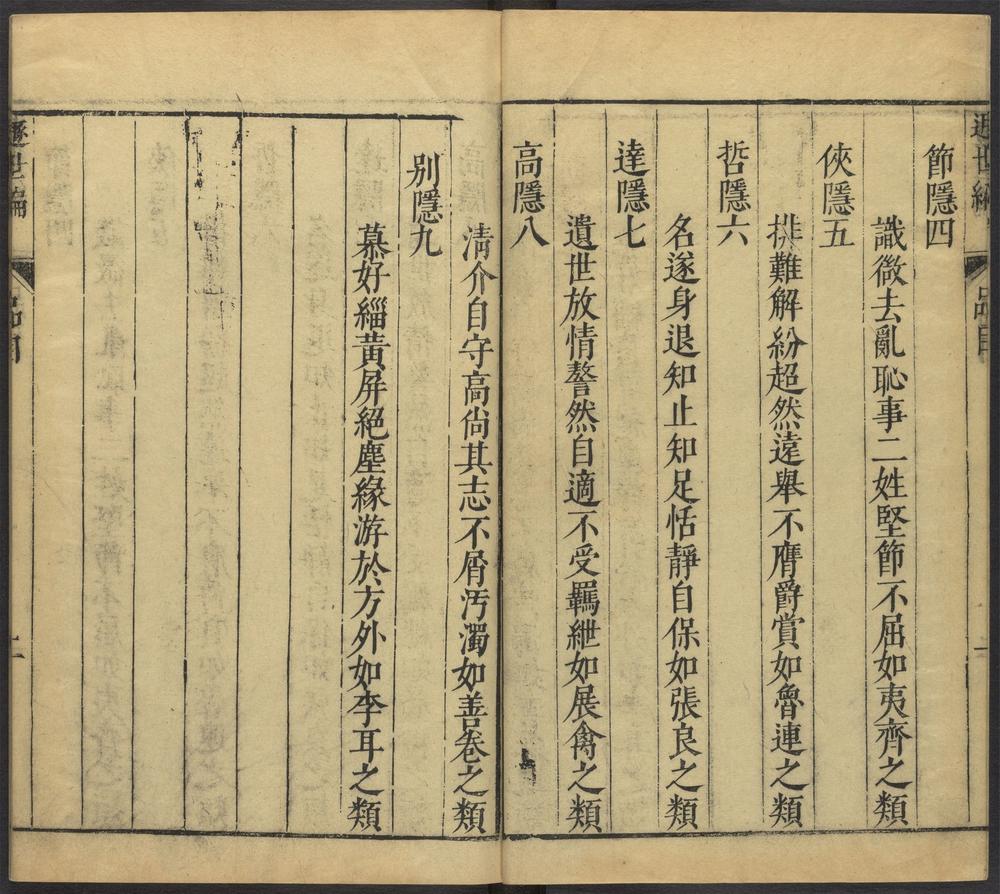 節隱四
識微去亂恥事二姓堅節不屈如夷齊之類
俠隱五
排難解紛超然遠舉不膺爵賞如魯連之類
哲隱六
名遂身退知止知足恬靜自保如張良之類
達隱七
遺世放情謷然自適不受羈紲如展禽之類
高隱八
清介自守高尙其志不屑汚濁如善卷之類
別隱九
慕好緇黃屏絕塵緣游於方外如李耳之類
品目
二